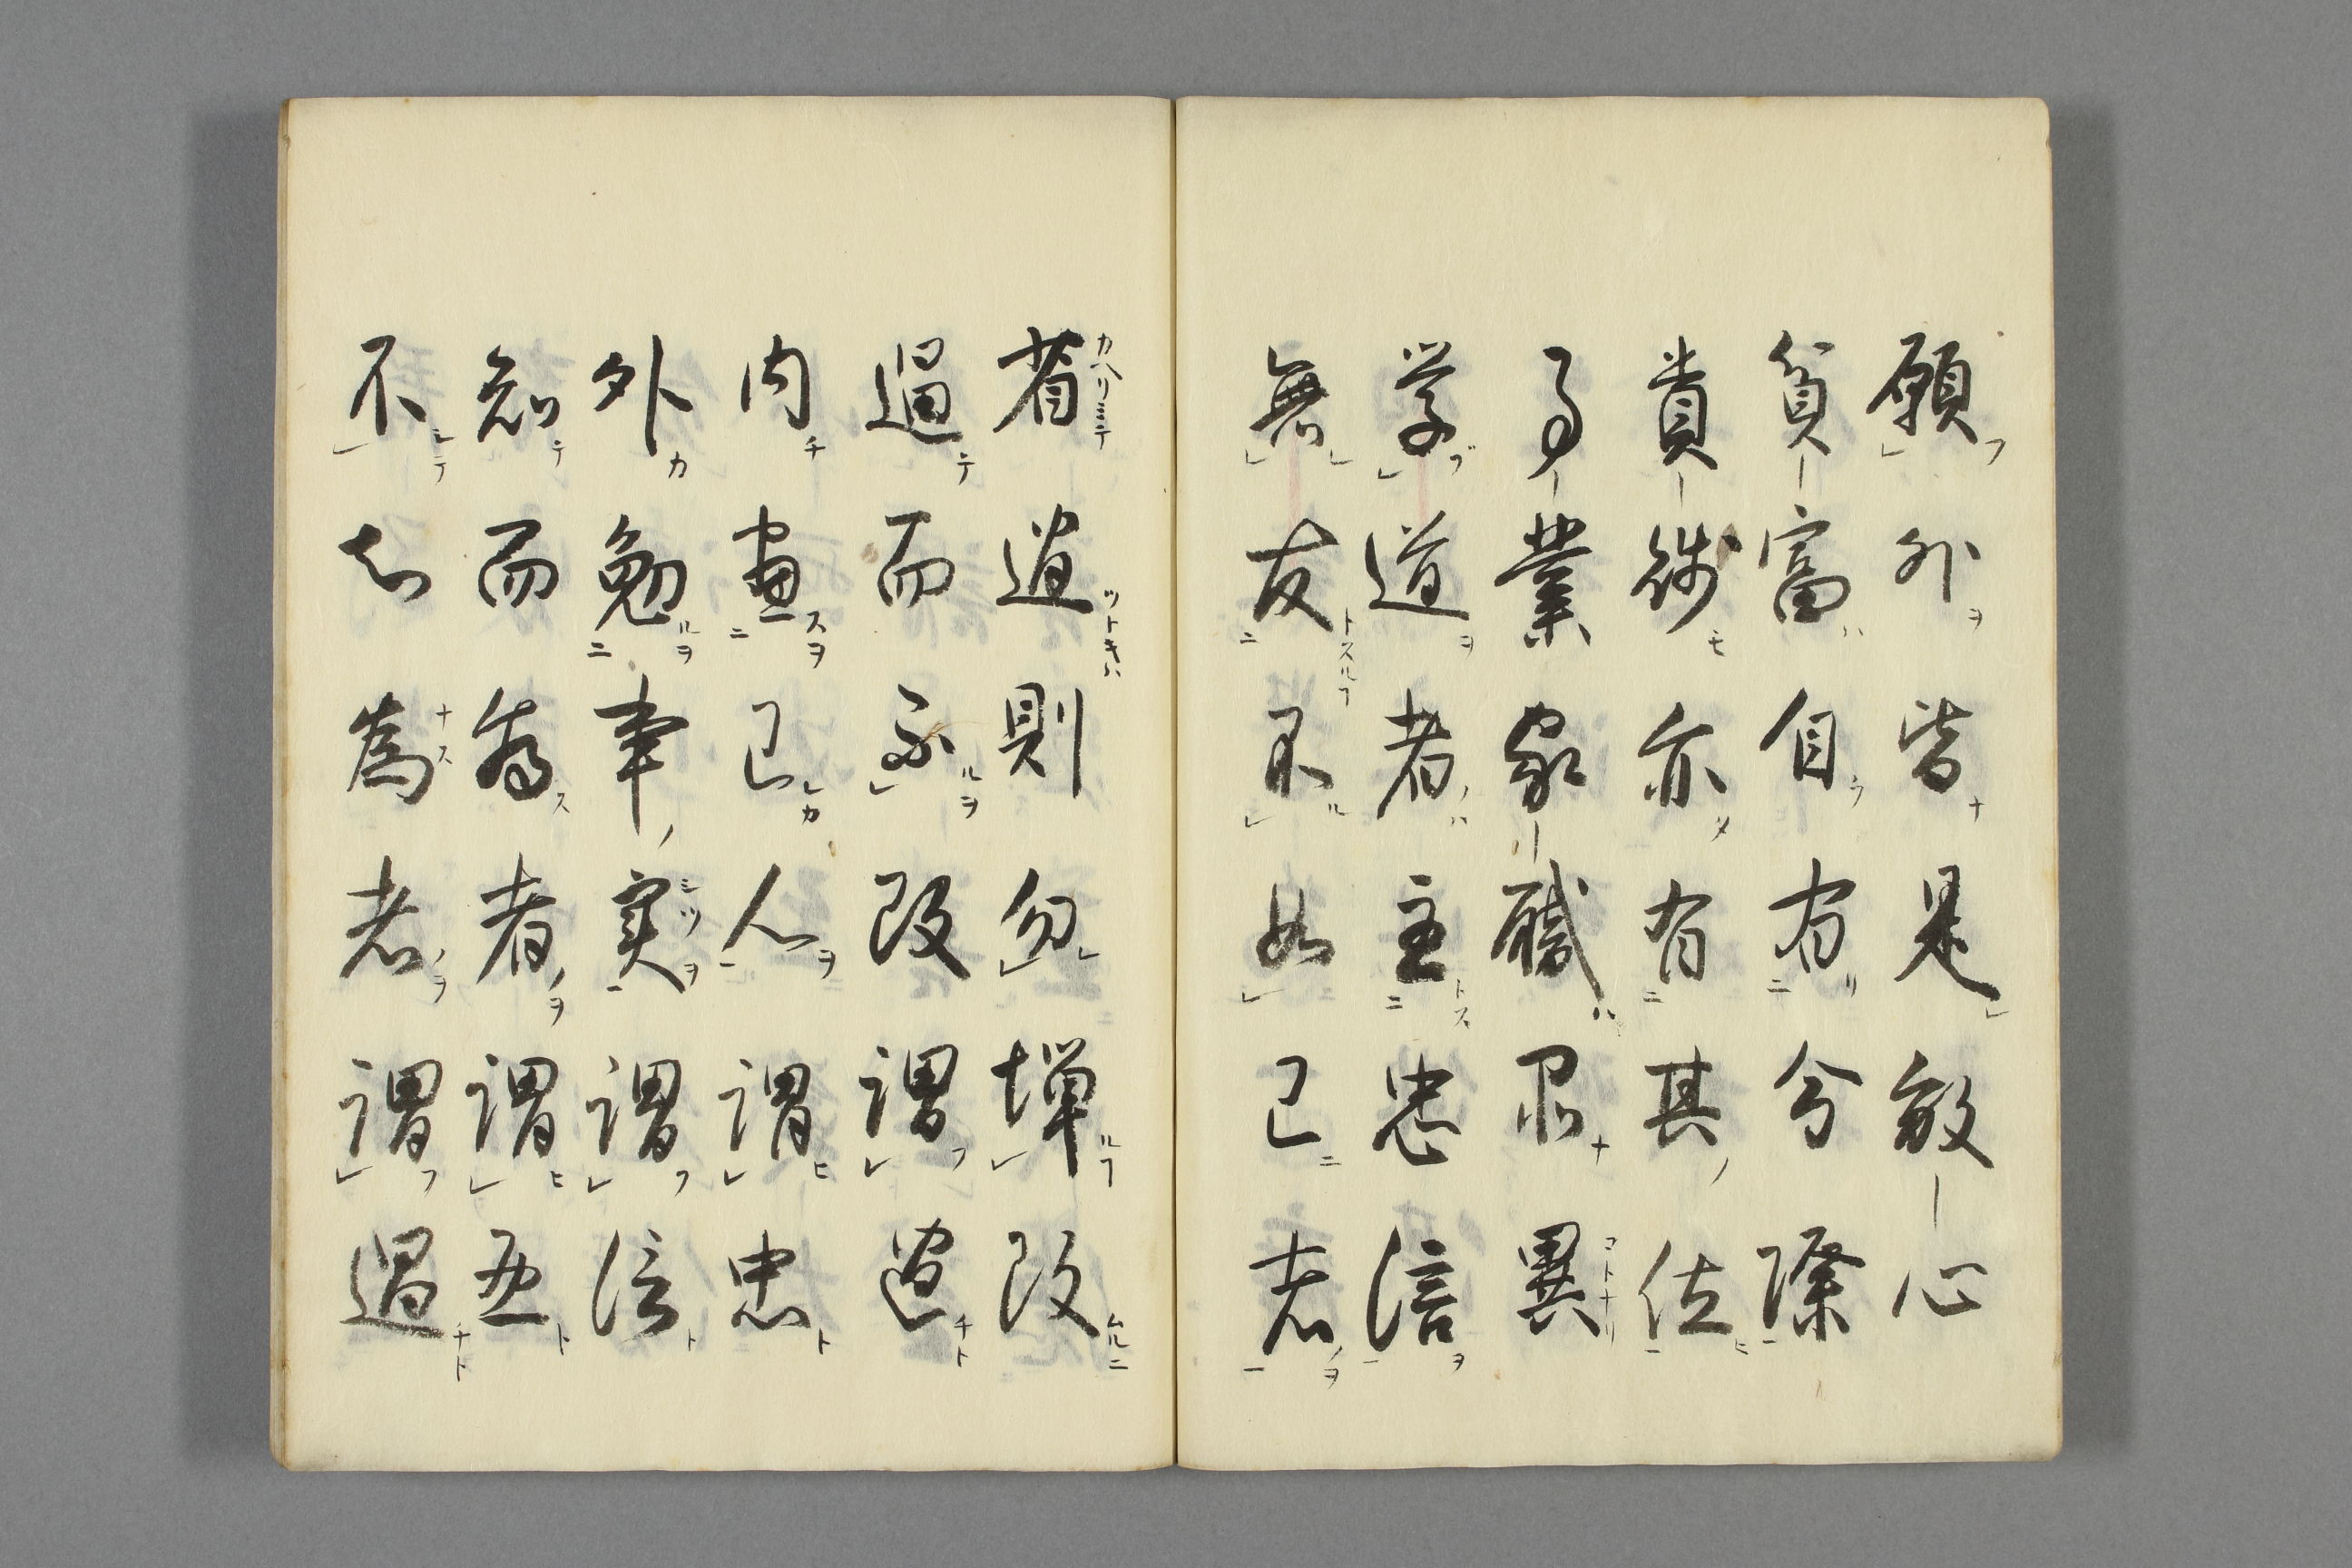 願外皆是心
貧富自有分際
貴賤亦有其位
事業家職尽異
学道者主忠信
無友不如己者
省過則勿憚改
過而不改謂過
内尽己心謂忠
外勉事実謂信
知而為者謂悪
不知為者謂過